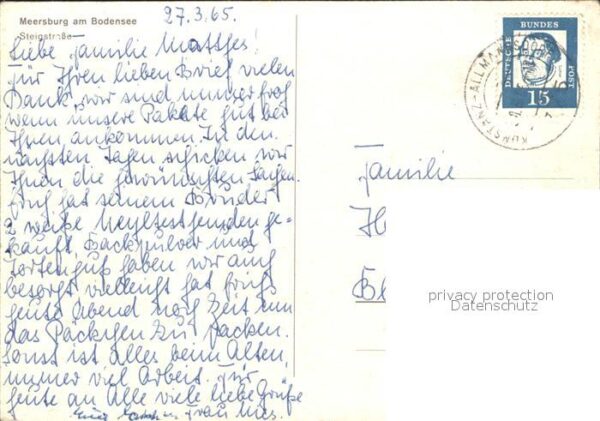 Meersburg am Bodensee
Steigstraße
27.3.65.
Liebe Familie Mattjes!
Für Ihren lieben Brief vielen
Dank, wir sind immer froh
wenn unsere Pakete gut bei
Ihnen ankommen. In den
nächsten Tagen schicken wir
Ihnen die gewünschten Sachen.
hat seinem Bruder
2 weiße Nyltesthemden ge-
kauft, Backpulver und
Tortenguß haben wir auch
besorgt vielleicht hat
heute Abend noch Zeit um
das Päckchen zu packen.
Sonst ist alles beim Alten,
immer viel Arbeit. Für
heute an Alle viele liebe Grüße
Frau
DEUTSCHE
BUNDES
POST
15
KONSTANZ-ALLMANNSDORF
Familie
H
Bl
privacy protection
Datenschutz